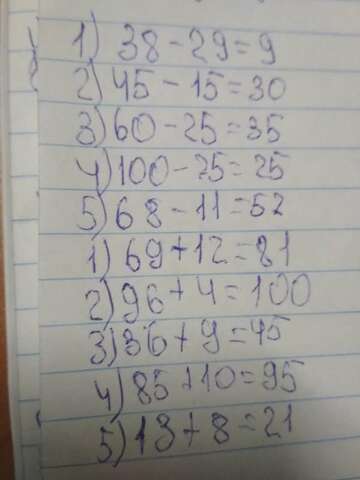 1) 38-29=9
2) 45-15=30
3) 60-25=35
4) 100-75=25
5) 68-11=52
1) 69+12=81
2) 96+4=100
3) 36+9=45
4) 85+10=95
5) 13+8=21